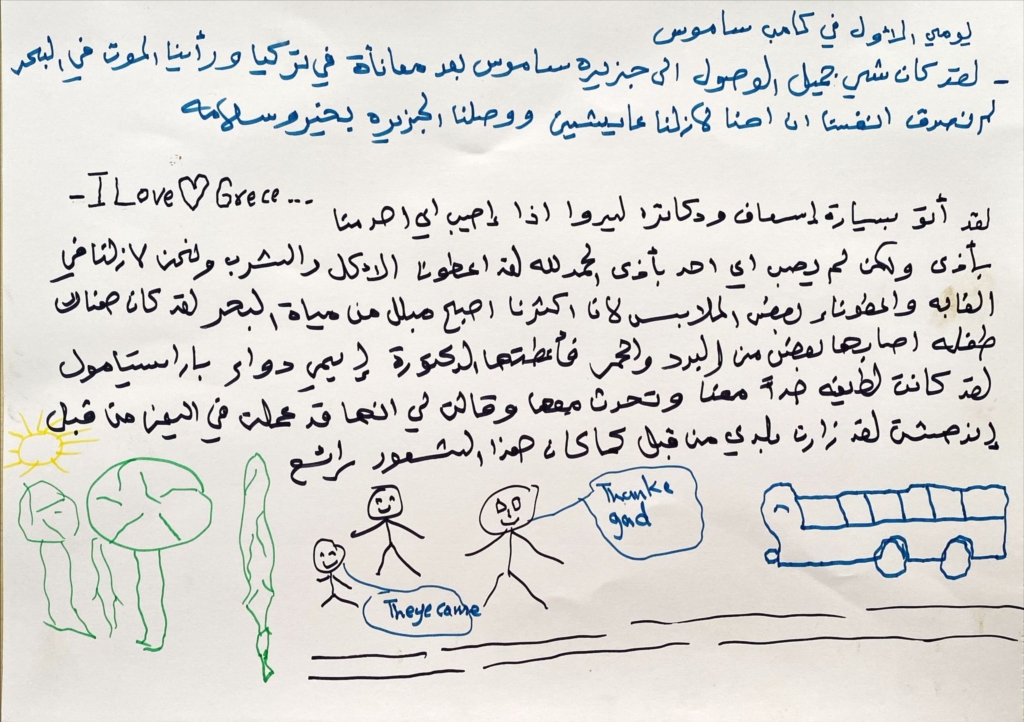 يومي الاول في كامب ساموس
- لقد كان شي جميل الوصول الى جزيره ساموس بعد معاناة في تركيا ورأينا الموت في البحر
لم نصدق انفسنا ان احنا لازلنا عايشين ووصلنا الجزيره بخير وسلامه
- I Love ♡ Grece...
لقد أتو بسيارة إسعاف ودكاترا ليروا اذا إصيب اي احد منا
بأذى ولكن لم يصب اي احد بأذى الحمد لله لقد اعطونا الاكل والشرب ونحن لازلنا في
الغابه واعطونا بعض الملابس لان اكثرنا اصبح مبلل من مياة البحر لقد كان هناك
طفله اصابها بعض من البرد والحمر فأعطتها الدكتورة إيمي دواء باراستيامول
لقد كانت لطيفه جداً معنا وتحدث معها وقالت لي انها قد عملت في اليمن من قبل
إندهشت لقد زارت بلدي من قبل كما كان هذا الشعور رائع
Thanke
gad
Theye came